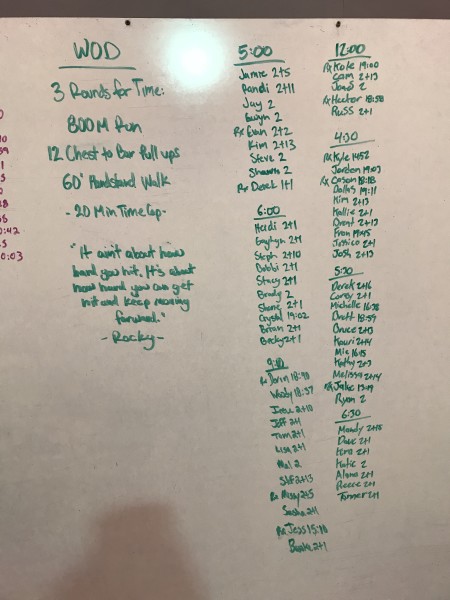 WOD
3 Rounds for Time:
800M Run
12 Chest to Bar Pull ups
60' Handstand Walk
- 20 Min Time Cap -
"It ain't about how
hard you hit. It's about
how hard you can get
hit and keep moving
forward."
- Rocky -
5:00
Jamie 2+5
Randi 2+11
Jay 2
Gwyn 2
Rx Evan 2+2
Kim 2+13
Steve 2
Shawn 2
Rx Derek 1+1
6:00
Heidi 2+1
2+1
Steph 2+10
Bobbi 2+1
Stacy 2+1
Brady 2
Shane 2+1
Crystal 19:02
Brian 2+1
Becky 2+1
9:10
Rx Dorin 18:40
Woody 18:37
2+10
Jeff 2+1
Tum 2+1
Lisa 2+1
Mal 2
2+13
Rx Missy 2+5
Sasha 2+1
Rx Jess 15:10
2+1
12:00
Rx Kole 19:00
Sam 2+13
2
Rx Hector 18:58
Russ 2+1
4:30
Rx Kyle 14:52
Jordan 19:03
Rx Cason 18:18
Dallas 19:11
Kim 2+13
Kallie 2+1
Brent 2+13
Fran 19:45
Jessica 2+1
Josh 2+13
5:30
Derek 2+6
Corey 2+1
Michelle 16:38
Brett 18:59
Bruce 2+13
Kauri 2+4
Mic 16:15
Kathy 2+3
Melissa 2+4
Rx Jake 13:19
Ryan 2
6:30
Mandy 2+13
Dave 2+1
Kera 2+1
Katie 2
Alana 2+1
Reece 2+1
Tanner 2+1